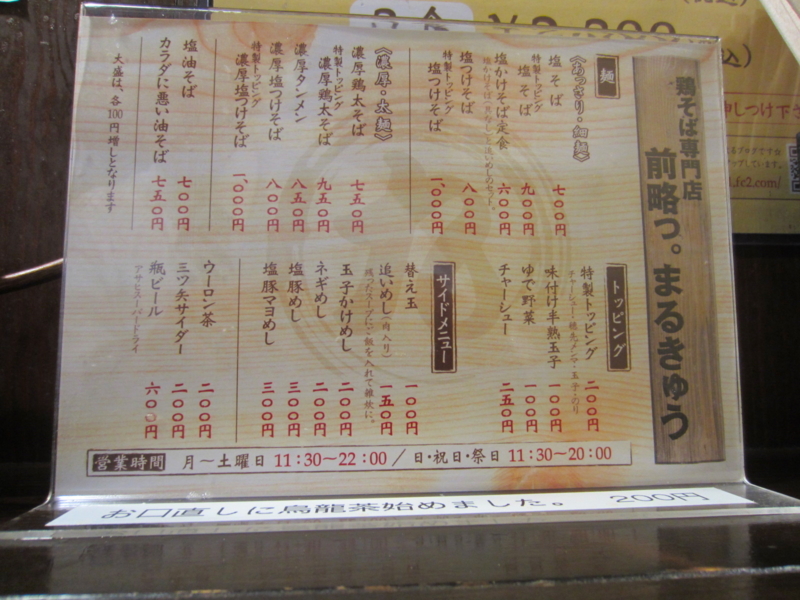 鶏そば専門店
前略っ。まるきゅう
麺
《あっさり・細麺》
塩そば 七〇〇円
特製トッピング
塩そば 九〇〇円
塩かけそば定食 六〇〇円
塩つけそば 八〇〇円
特製トッピング
塩つけそば 一、〇〇〇円
《濃厚・太麺》
濃厚鶏太そば 七五〇円
特製トッピング
濃厚鶏太そば 九五〇円
濃厚タンメン 八五〇円
濃厚塩つけそば 八〇〇円
特製トッピング
濃厚塩つけそば 一、〇〇〇円
塩油そば 七〇〇円
カラダに悪い油そば 七五〇円
大盛は、各100円増しとなります
トッピング
特製トッピング 二〇〇円
チャーシュー・穂先メンマ・玉子・のり
味付け半熟玉子 一〇〇円
ゆで野菜 一〇〇円
チャーシュー 二五〇円
サイドメニュー
替え玉 一〇〇円
追いめし(肉入り) 一五〇円
残ったスープにご飯を入れて雑炊に。
玉子かけめし 二〇〇円
ネギめし 二〇〇円
塩豚めし 三〇〇円
塩豚マヨめし 三〇〇円
ウーロン茶 二〇〇円
三ツ矢サイダー 二〇〇円
瓶ビール 六〇〇円
アサヒスーパードライ
営業時間 月～土曜日 11:30～22:00/日・祝日・祭日 11:30～20:00
お口直しに烏龍茶始めました。 200円